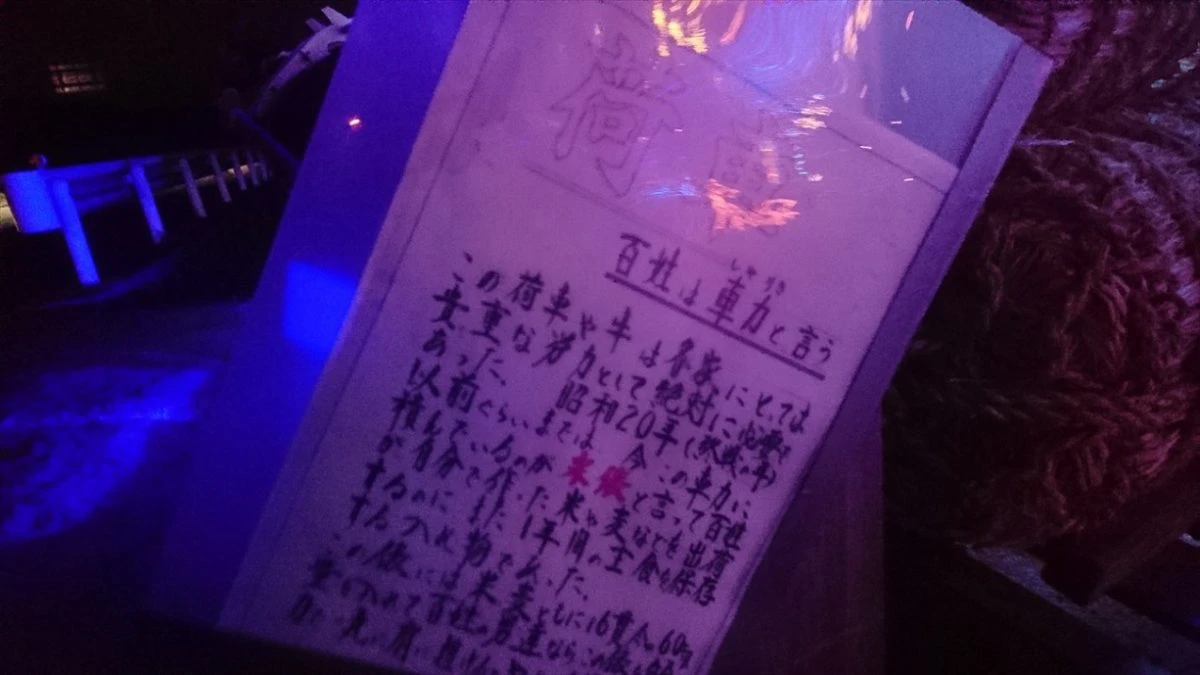 荷車
百姓は車力と言う
しゃりき
この荷車や牛は各家にとっては
貴重な労力として絶対に必要で
あった、 昭和20年(敗戦の年)
以前ぐらいまでは 今この車力に
積んでいるのが 米俵と言って百姓
が自分で作った米や麦などを出荷
するのに また1年間の主食を保存
する入れ物であった、
この俵には米麦ともに16貫入60kg